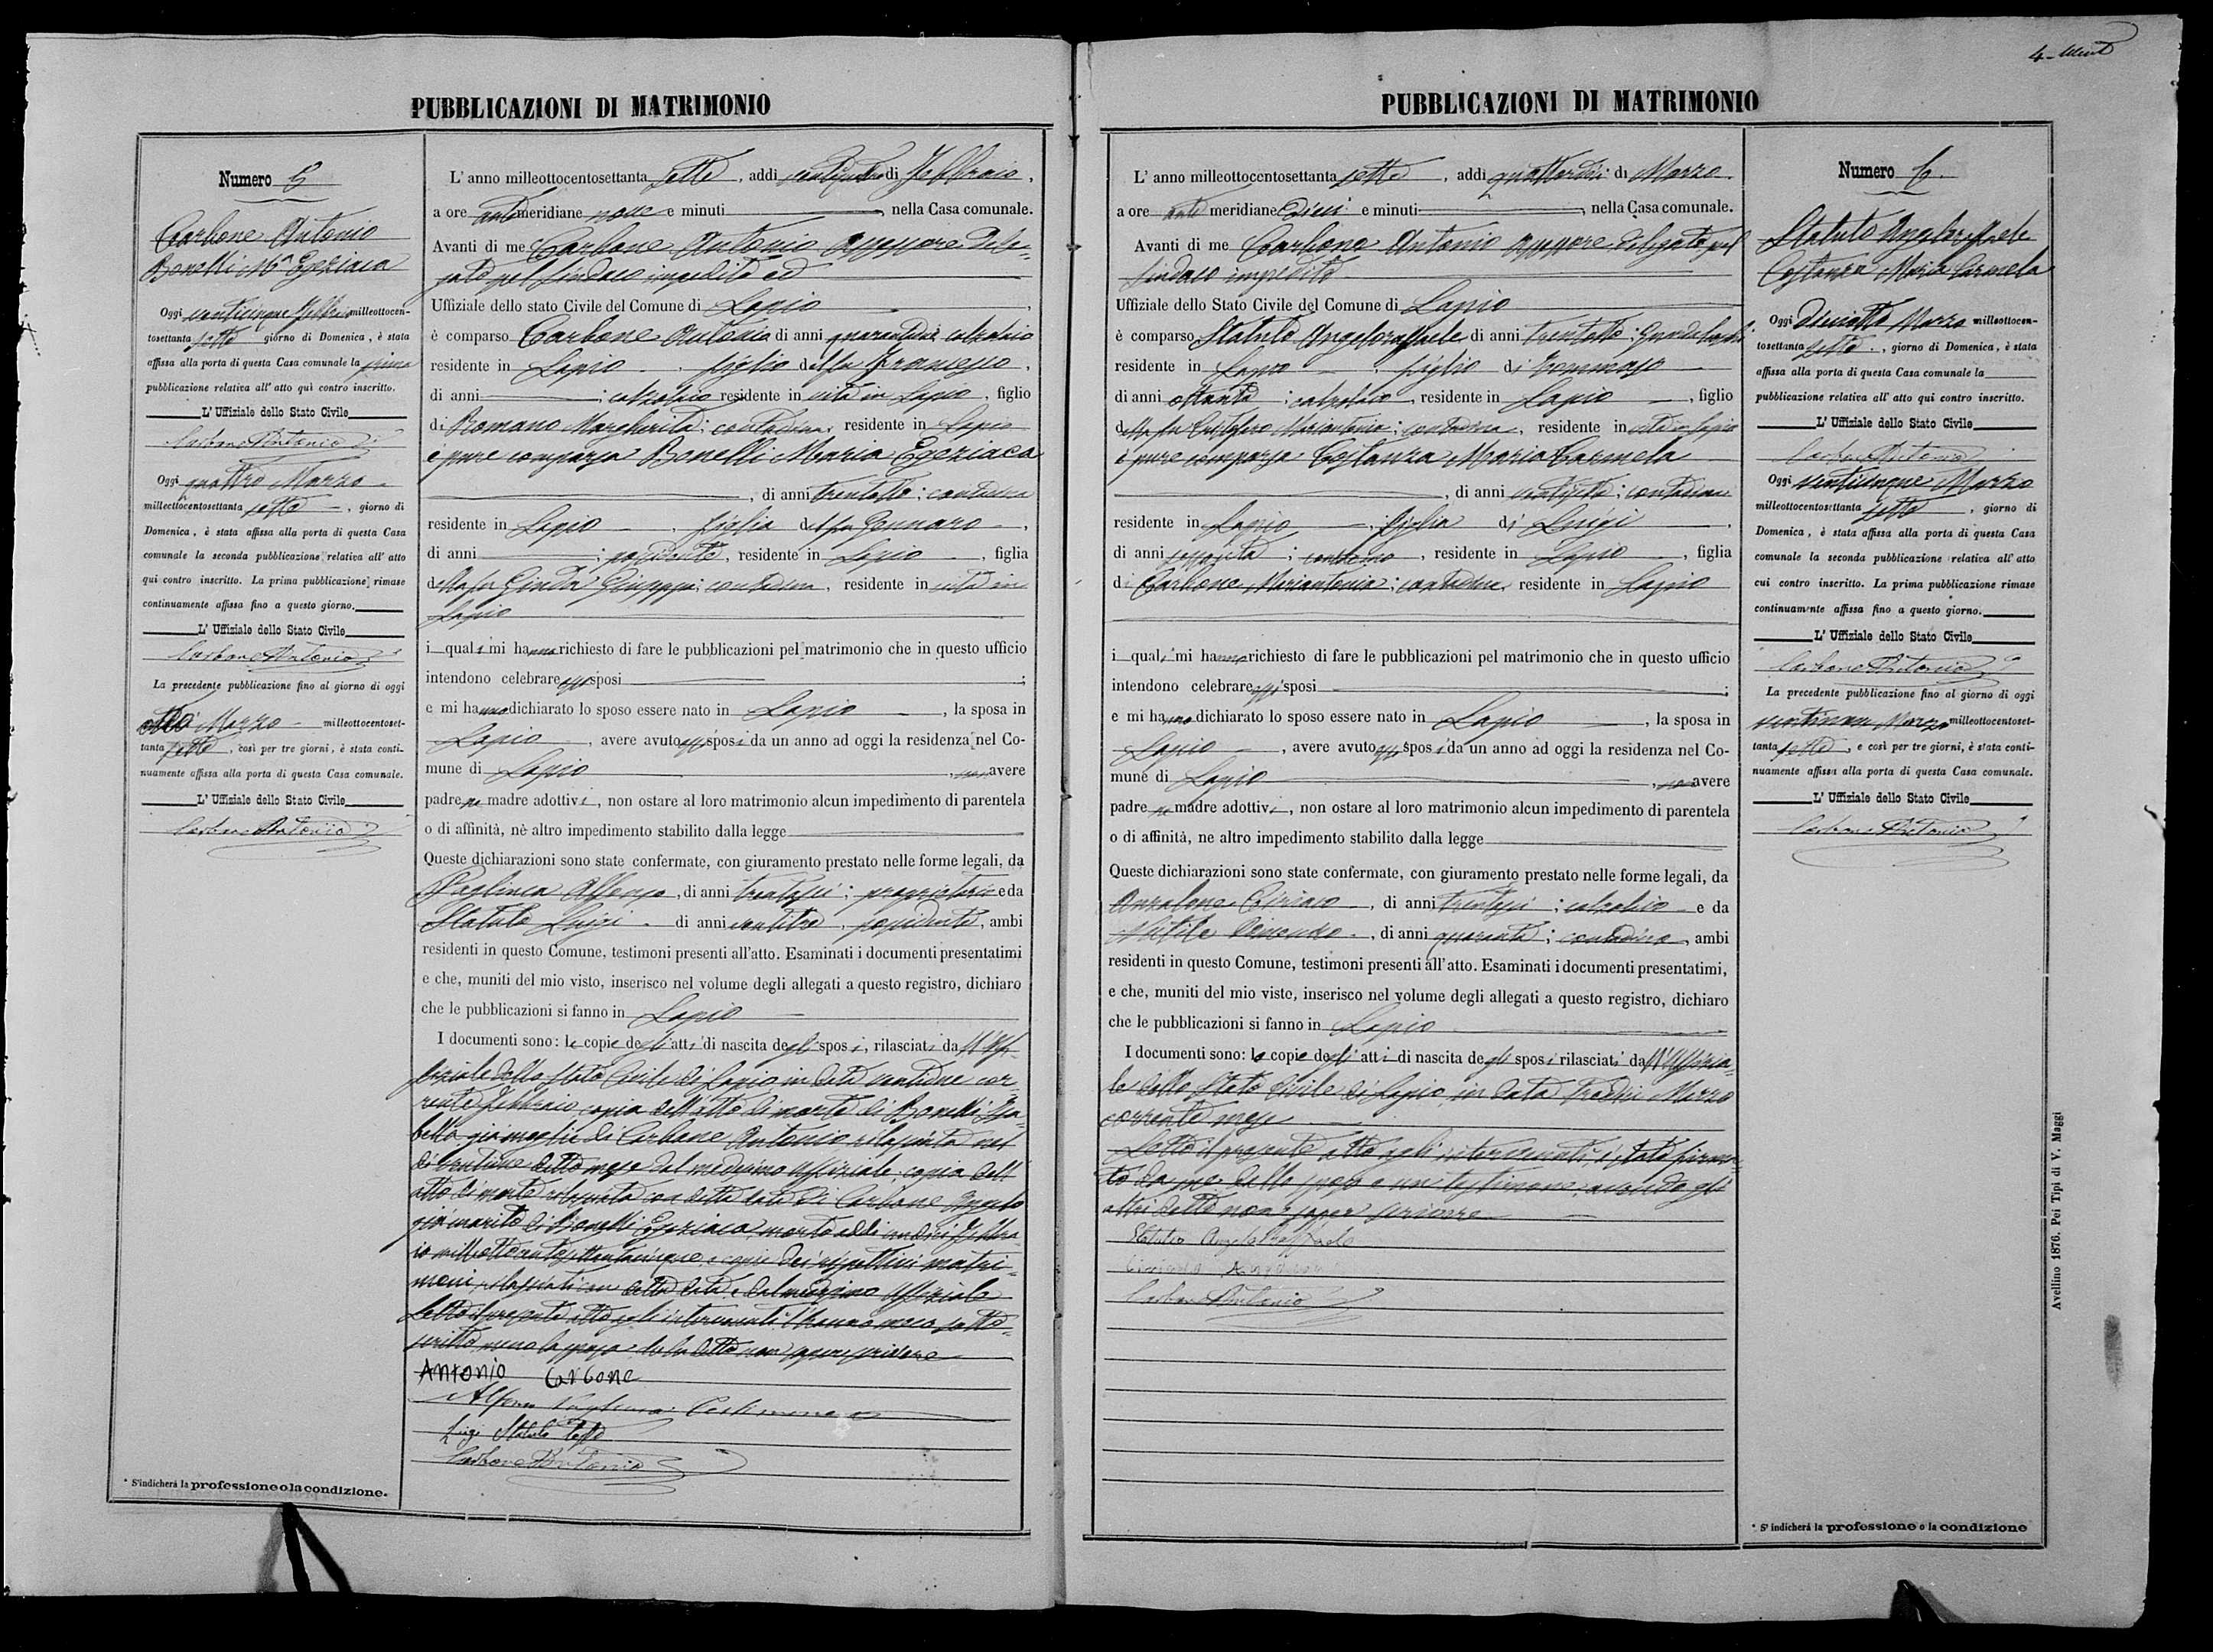 4-
PUBBLICAZIONI DI MATRIMONIO
Numero 5
Carbone Antonio
Bonelli Ma Egeziaca
Oggi venticinque Febbraio milleottocen-
tosettanta sette giorno di Domenica, è stata
affissa alla porta di questa Casa comunale la prima
pubblicazione relativa all' atto quì contro inscritto.
L' Uffiziale dello Stato Civile
Carbone Antonio
Oggi quattro Marzo
milleottocentosettanta sette, giorno di
Domenica, è stata affissa alla porta di questa Casa
comunale la seconda pubblicazione relativa all' atto
qui contro inscritto. La prima pubblicazione rimase
continuamente affissa fino a questo giorno.
L' Uffiziale dello Stato Civile
Carbone Antonio
La precedente pubblicazione fino al giorno di oggi
otto Marzo milleottocentoset-
tanta sette, così per tre giorni, è stata conti-
nuamente affissa alla porta di questa Casa comunale.
L' Uffiziale dello Stato Civile
Carbone Antonio
* S'indicherà la professione o la condizione.
L' anno milleottocentosettanta sette, addi di Febbraio,
a ore antimeridiane nove e minuti, nella Casa comunale.
Avanti di me Carbone Antonio Assessore Dele-
gato pel Sindaco impedito ed
Uffiziale dello stato Civile del Comune di Lapio,
è comparso Carbone Antonio di anni calzolaio
residente in Lapio, figlio del fu Francesco,
di anni; calzolaio residente in vita in Lapio, figlio
di Romano Margherita; contadina, residente in Lapio
e pure comparsa Bonelli Maria Egeziaca
, di anni trentotto; contadina
residente in Lapio, figlia del fu Gennaro,
di anni; possidente, residente in Lapio, figlia
della fu Giuseppa; contadina, residente in vita in
Lapio
i quali mi hanno richiesto di fare le pubblicazioni pel matrimonio che in questo ufficio
intendono celebrare essi sposi;
e mi hanno dichiarato lo sposo essere nato in Lapio, la sposa in
Lapio, avere avuto essi sposi da un anno ad oggi la residenza nel Co-
mune di Lapio, non avere
padre ne madre adottivi, non ostare al loro matrimonio alcun impedimento di parentela
o di affinità, nè altro impedimento stabilito dalla legge
Queste dichiarazioni sono state confermate, con giuramento prestato nelle forme legali, da
Alfonso, di anni trentasei; proprietario e da
Statuto Luigi di anni ventitre, possidente, ambi
residenti in questo Comune, testimoni presenti all'atto. Esaminati i documenti presentatimi
e che, muniti del mio visto, inserisco nel volume degli allegati a questo registro, dichiaro
che le pubblicazioni si fanno in Lapio
I documenti sono: le copie degli atti di nascita degli sposi, rilasciati dall'Uf-
fiziale dello Stato Civile di Lapio in data ventidue cor-
rente Febbraio copia dell'atto di morte di Bonelli Isa-
bella già moglie di Carbone Antonio rilasciata nel
dì ventidue detto mese dal medesimo Uffiziale; copia dell'
atto di morte rilasciata con detta data di Carbone Angelo
già marito di Bonelli Egeziaca, morto addì undici Febbra-
io milleottocentosettantacinque, e copie dei rispettivi matri-
moni, rilasciati con detta data e dal medesimo Uffiziale
Letto il presente atto agli intervenuti l'hanno meco sotto-
scritto, meno la sposa che ha detto non sapere scrivere
Antonio Carbone
Alfonso Testimone
Luigi Statuto Testo
Carbone Antonio
PUBBLICAZIONI DI MATRIMONIO
L' anno milleottocentosettanta sette, addi quattordici di Marzo.
a ore antimeridiane dieci e minuti, nella Casa comunale.
Avanti di me Carbone Antonio Assessore delegato pel
Sindaco impedito
Uffiziale dello Stato Civile del Comune di Lapio
è comparso Statuto Angeloraffaele di anni trentotto;
residente in Lapio, figlio di Tommaso
di anni ottanta; calzolaio, residente in Lapio, figlio
della fu Mariantonia; contadina, residente in vita in Lapio
è pure comparsa Costanza Maria Carmela
, di anni ventisette; contadina
residente in Lapio, figlia di Luigi,
di anni sessanta; contadino, residente in Lapio, figlia
di Carbone Mariantonia; contadina, residente in Lapio
i quali mi hanno richiesto di fare le pubblicazioni pel matrimonio che in questo ufficio
intendono celebrare essi sposi;
e mi hanno dichiarato lo sposo essere nato in Lapio, la sposa in
Lapio, avere avuto essi sposi da un anno ad oggi la residenza nel Co-
mune di Lapio, non avere
padre ne madre adottivi, non ostare al loro matrimonio alcun impedimento di parentela
o di affinità, ne altro impedimento stabilito dalla legge
Queste dichiarazioni sono state confermate, con giuramento prestato nelle forme legali, da
Anzalone Ciriaco, di anni trentasei; calzolaio e da
, di anni quaranta; contadino, ambi
residenti in questo Comune, testimoni presenti all'atto. Esaminati i documenti presentatimi,
e che, muniti del mio visto, inserisco nel volume degli allegati a questo registro, dichiaro
che le pubblicazioni si fanno in Lapio
I documenti sono: le copie degli atti di nascita degli sposi rilasciati dall'Uffizia-
le dello Stato Civile di Lapio in data tredici Marzo
corrente mese
Letto il presente atto agli intervenuti è stato firma-
to da me dallo sposo e un testimone; avendo gli
altri detto non saper scrivere
Statuto Angeloraffaele
Ciriaco Anzalone
Carbone Antonio
Numero 6.
Statuto Angeloraffaele
Costanza Maria Carmela
Oggi diciotto Marzo milleottocen-
tosettanta sette, giorno di Domenica, è stata
affissa alla porta di questa Casa comunale la
pubblicazione relativa all' atto qui contro inscritto.
L' Uffiziale dello Stato Civile
Carbone Antonio
Oggi venticinque Marzo
milleottocentosettanta sette, giorno di
Domenica, è stata affissa alla porta di questa Casa
comunale la seconda pubblicazione relativa all' atto
cui contro inscritto. La prima pubblicazione rimase
continuamente affissa fino a questo giorno.
L' Uffiziale dello Stato Civile
Carbone Antonio
La precedente pubblicazione fino al giorno di oggi
ventinove Marzo milleottocentoset-
tanta sette, e così per tre giorni, è stata conti-
nuamente affissa alla porta di questa Casa comunale.
L' Uffiziale dello Stato Civile
Carbone Antonio
* S' indicherà la professione o la condizione
Avellino 1876. Pei Tipi di V. Maggi